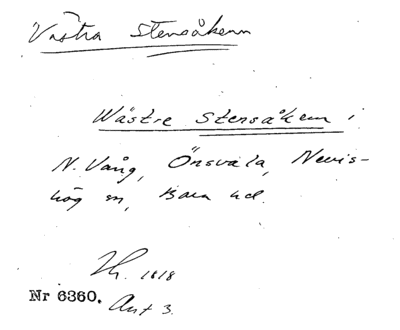 Västra Stensåkern
Wästre Stensåkern i
N. Vång, Önsvala, Nevis-
hög sn, Bara hd.
Lh. 1818
Nr 6360. Akt 3.